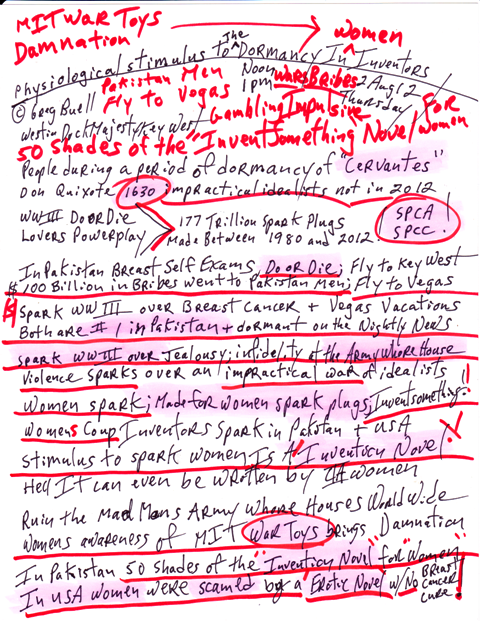 MIT WAR TOYS → women
Damnation
Physiological stimulus to The Dormancy In Inventors
Pakistan Men Noon Wars Bribes 2 Aug 12
Fly to Vegas 1pm Thursday
© Greg Buell Gambling Impulsive for
Westin Dock Majesty/Key West women
50 Shades of the "Invent Something Novel
People during a period of dormancy of "Cervantes"
Don Quixote 1630 impractical idealists not in 2012
WW III Do or Die 177 Trillion Spark Plugs SPCA
Lovers Powerplay Made Between 1980 and 2012. SPCC.
In Pakistan Breast Self Exams Do or Die; Fly to Key West
$100 Billion in Bribes went to Pakistan Men; Fly to Vegas
Spark WW III over Breast Cancer + Vegas Vacations
Both are #1 in Pakistan + dormant on the Nightly News.
spark WW III over Jealousy; infidelity of the Army Whore House
Violence sparks over an impractical war of idealists
Women spark; Made for women spark plugs; Invent something!!
Womens Coup Inventors Spark in Pakistan + USA
Stimulus to spark women Is A "Inventicn Novel"
Hell It can even be wrotten by III women
Ruin the Mad Mans Army Whore Houses World Wide
Womens awareness of MIT War Toys brings Damnation
In Pakistan 50 shades of the "Inventicn Novel" for "Women"
In USA women were scamed by a Erotic Novel w/No Breast Cancer Cure!